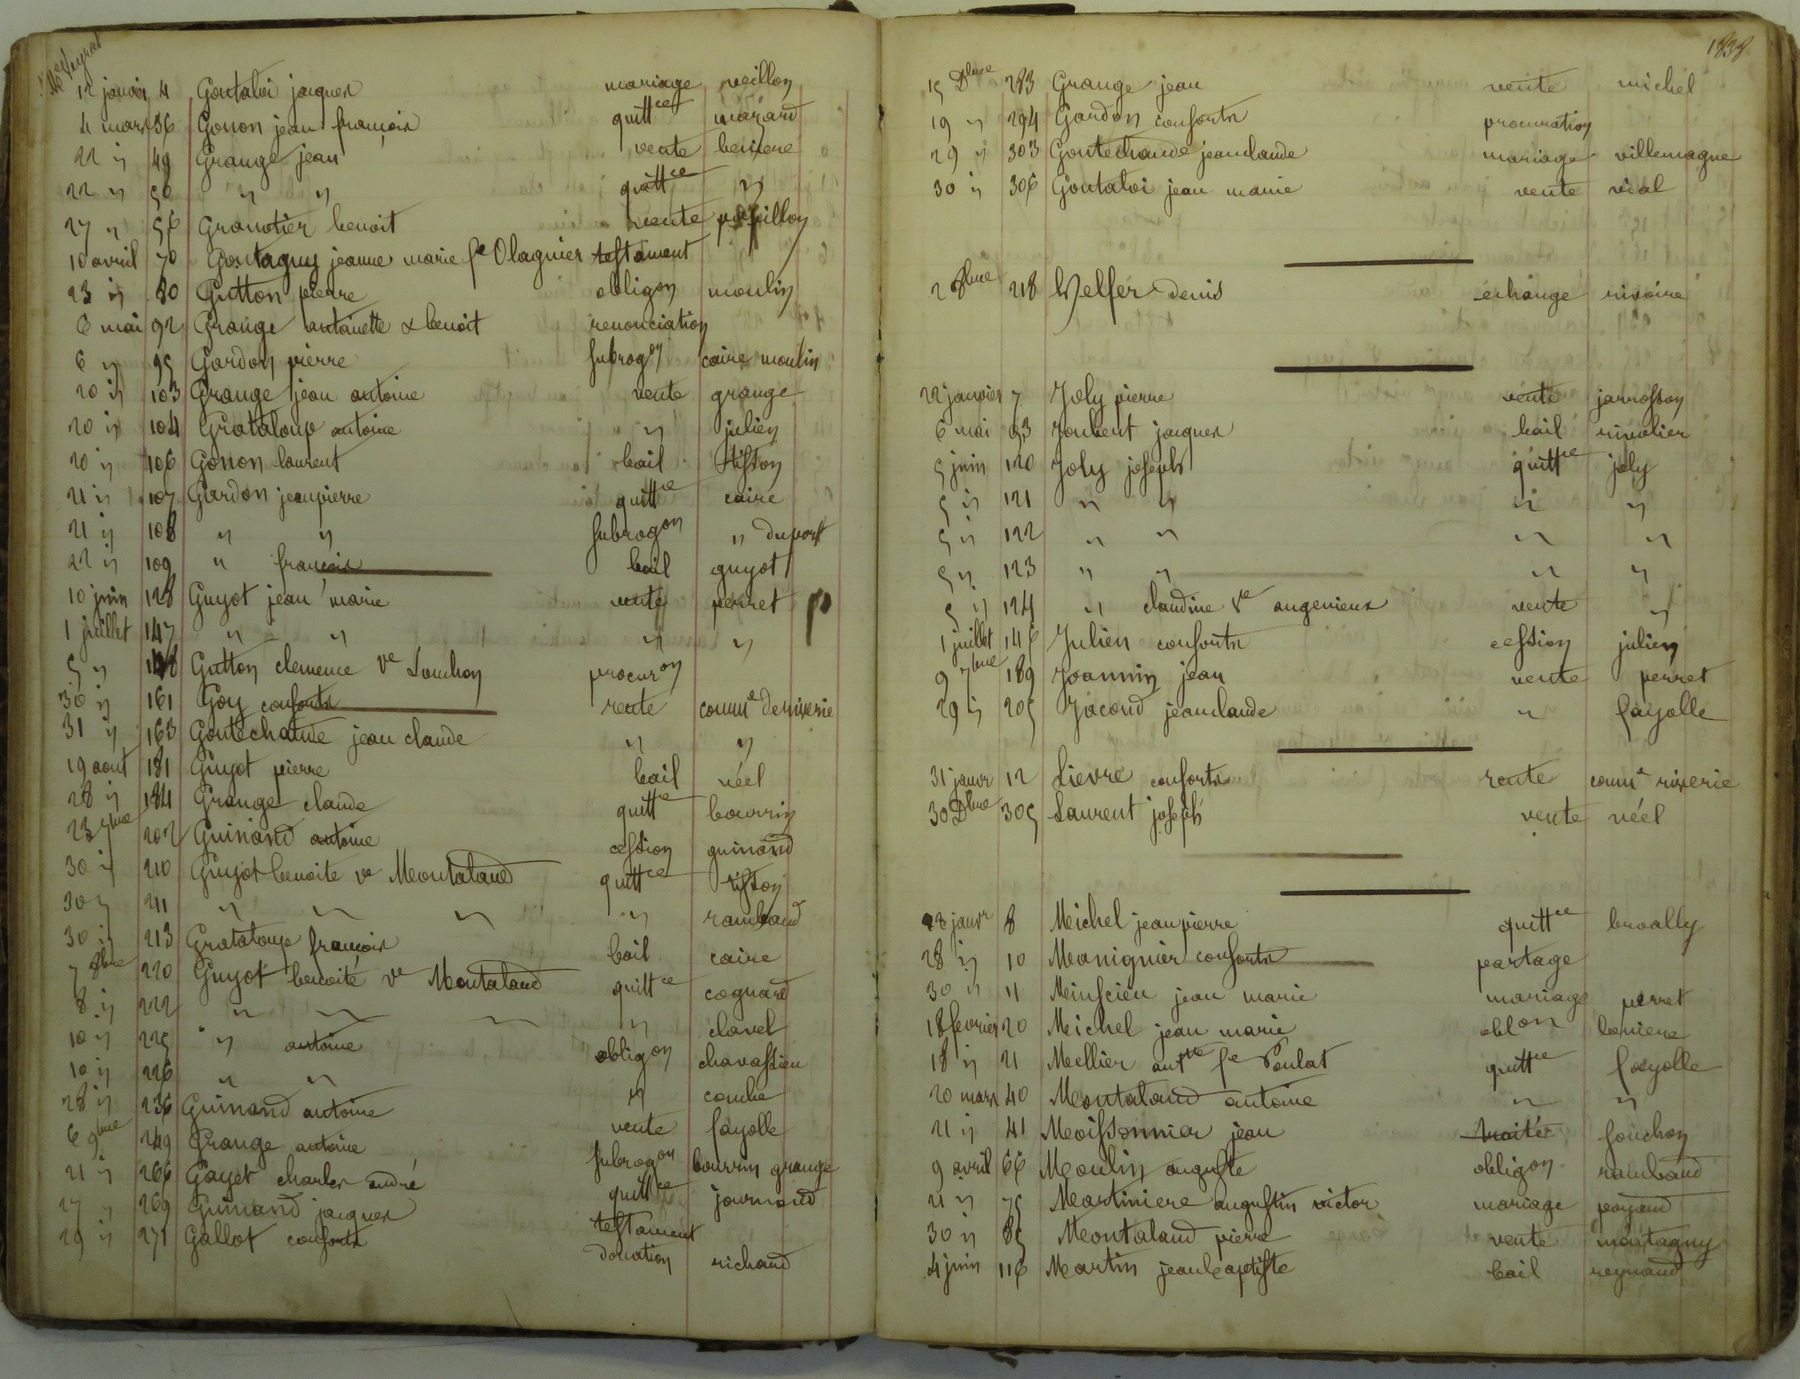 Me Veyrat
12 janvier 4 Goutaloi jacques mariage veillon
4 mars 36 Gonon jean françois quittce mazard
22 ״ 49 Grange jean vente
22 ״ 50 ״ ״ quittce ״
27 ״ 56 Granotier benoit vente papillon
10 avril 70 Gontagny jeanne marie fe Olagnier testament
23 ״ 80 Gutton pierre obligon moulin
6 mai 92 Grange antoinette & benoit renonciation
6 ״ 95 Gardon pierre subrogon caire moulin
20 ״ 103 Grange jean antoine vente grange
20 ״ 104 Grataloup antoine ״ julien
20 ״ 106 Gonon laurent bail tisson
21 ״ 107 Gardon jean pierre quittce caire
21 ״ 108 ״ ״ subrogon ״ duport
22 ״ 109 ״ françois bail guyot
10 juin 128 Guyot jean marie vente perret
1 juillet 147 ״ ״ ״ ״
5 ״ 148 Gutton clemence ve Souchon procuron
30 ״ 161 Goy consorts rente commne de riverie
31 ״ 163 Goutechaude jean claude ״ ״
19 aout 181 Guyot pierre bail néel
28 ״ 184 Grange claude quittce bourrin
23 7bre 202 Guinand antoine cession guinand
30 ״ 210 Guyot benoite ve Montaland quittce tisson
30 ״ 211 ״ ״ ״ ״ rambaud
30 ״ 213 Grataloup françois bail caire
7 8bre 220 Guyot benoite ve Montaland quittce cognard
8 ״ 222 ״ ״ ״ ״ clavel
10 ״ 225 ״ antoine obligon chavassieu
10 ״ 226 ״ ״ ״ combe
28 ״ 236 Guinand antoine vente fayolle
6 9bre 249 Grange antoine subrogon bourrin grange
21 ״ 266 Gayet charles andré quittce journoud
27 ״ 269 Guinand jacques testament
29 ״ 271 Gallot consorts donation richard
1838
15 Dbre 283 Grange jean vente michel
19 ״ 294 Gardon consorts procuration
29 ״ 303 Goutechaude jean claude mariage villemagne
30 ״ 306 Goutaloi jean marie vente vial
2 8bre 218 Helfer denis echange rivoire
22 janvier 7 Joly pierre vente jarrosson
6 mai 93 Joubert jacques bail rivolier
5 juin 120 Joly joseph quittce joly
5 ״ 121 ״ ״ ״ ״
5 ״ 122 ״ ״ ״ ״
5 ״ 123 ״ ״ ״ ״
5 ״ 124 ״ claudine ve augenieux vente ״
1 juillet 146 Julien consorts cession julien
9 7bre 189 Joannin jean vente perret
29 ״ 205 Jacoud jean claude ״ fayolle
31 janvr 12 Lievre consorts rente commne riverie
30 Dbre 305 Laurent joseph vente néel
23 janvr 8 Michel jean pierre quittce broally
28 ״ 10 Manignier consorts partage
30 ״ 11 jean marie mariage perret
18 fevrier 20 Michel jean marie oblon
18 ״ 21 Mellier antte fe Poulat quittce fayolle
20 mars 40 Montaland antoine ״ ״
21 ״ 41 Moissonnier jean traité souchon
9 avril 66 Moulin auguste obligon rambaud
21 ״ 75 Martiniere augustin victor mariage payaud
30 ״ 85 Montaland pierre vente montagny
4 juin 116 Martin jean baptiste bail reynaud